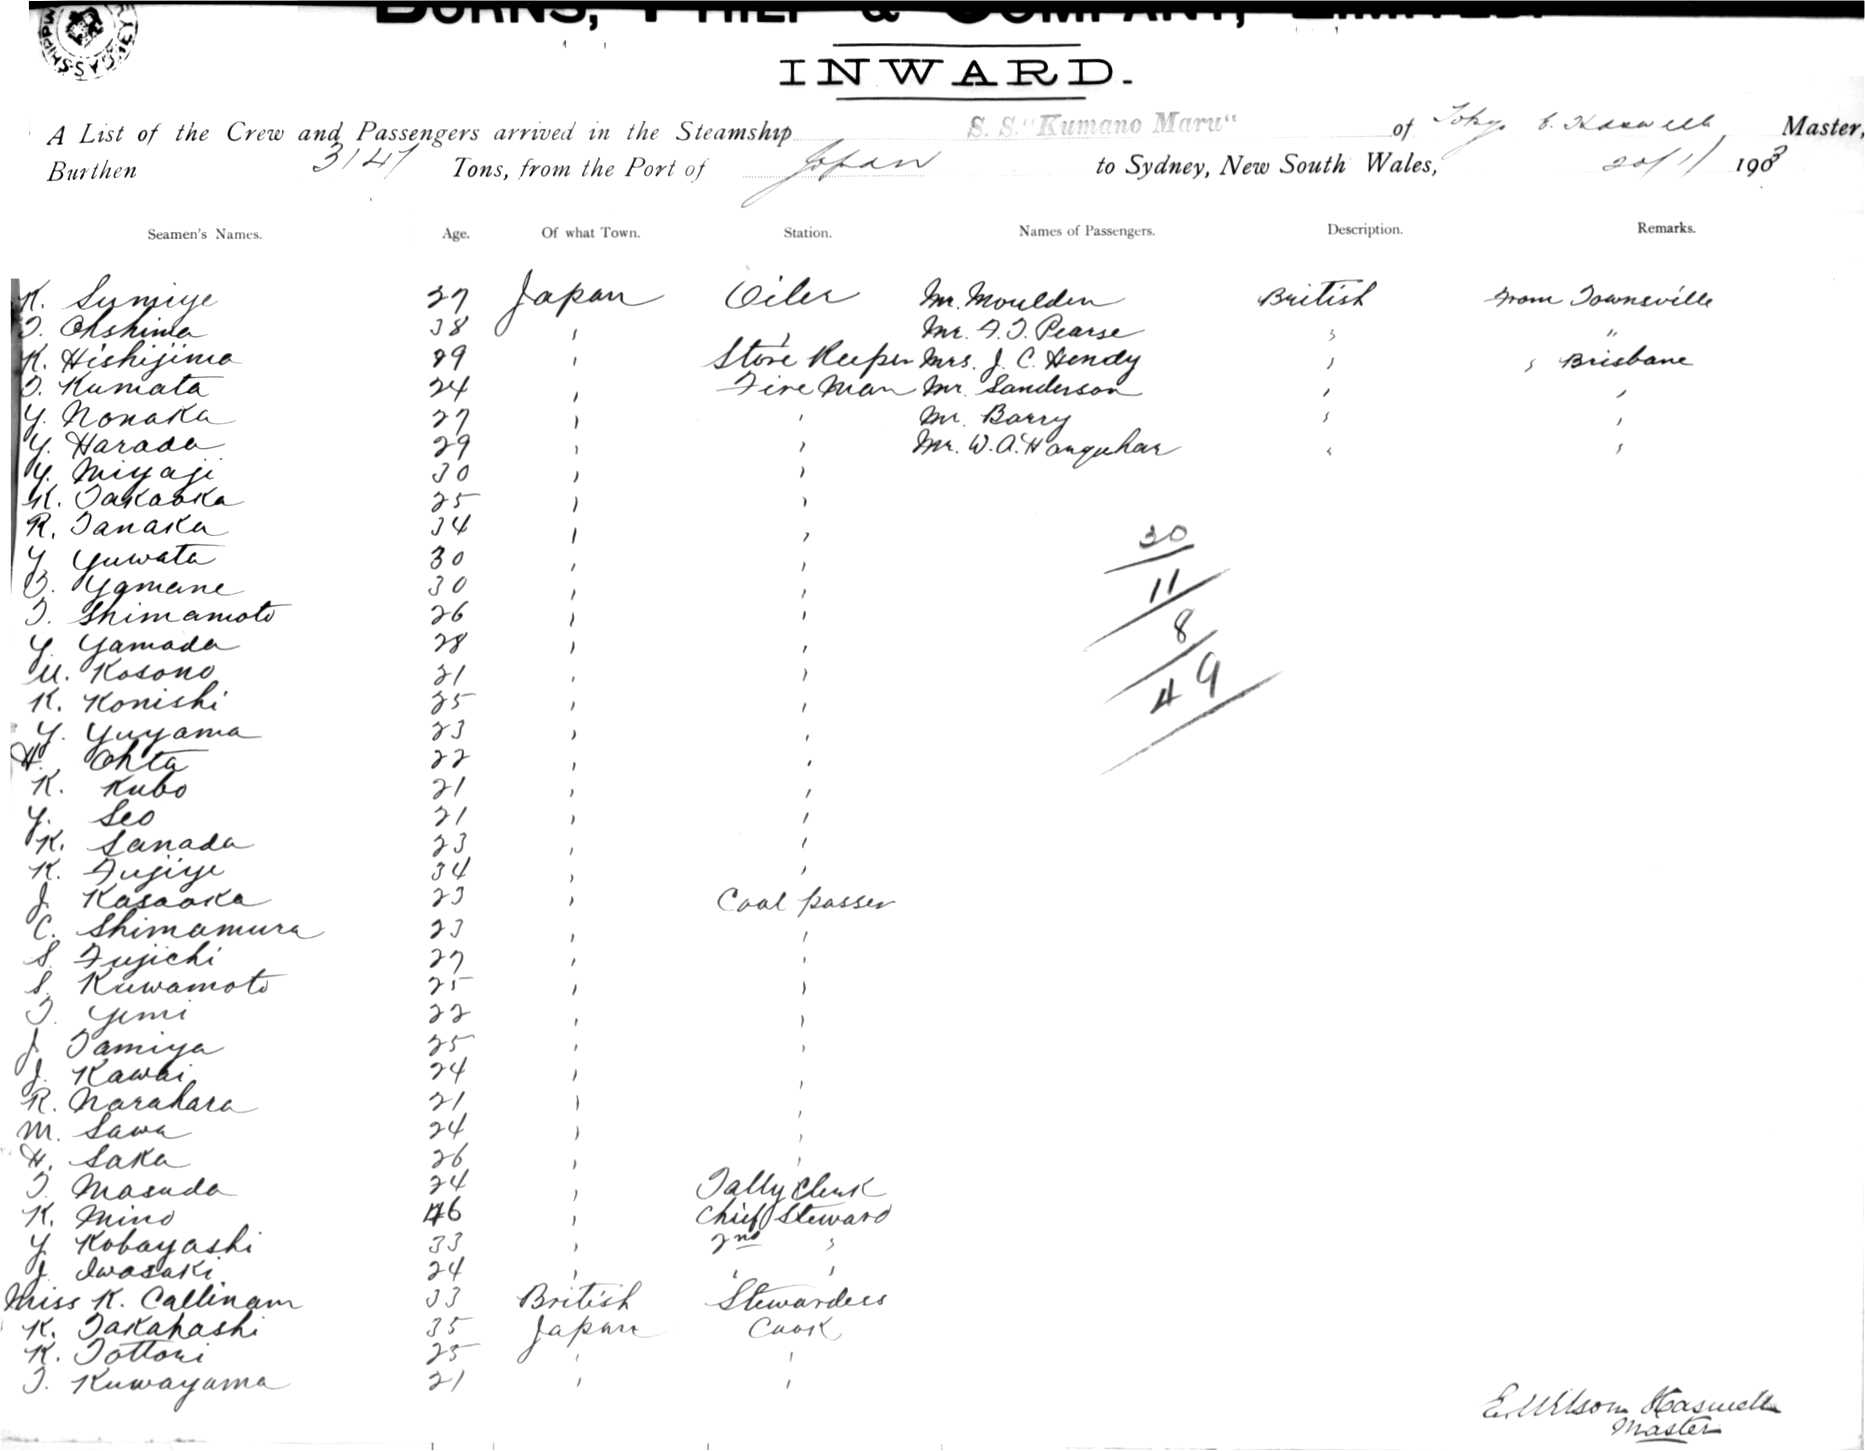 BURNS, PHILP & COMPANY, LIMITED.
INWARD.
A List of the Crew and Passengers arrived in the Steamship S. S. "Kumano Maru" of Tokyo E. Haswell Master,
Burthen 3147 Tons, from the Port of Japan to Sydney, New South Wales, 20/1/ 1903
Seamen's Names. Age. Of what Town. Station. Names of Passengers. Description. Remarks.
K. Sumiye 27 Japan Oiler Mr. Moulden British From Townsville
T. Ohshima 38 " " Mr. F. T. Pearse " "
K. Hishijima 29 " Store Keeper Mrs. J. C. Hendy " " Brisbane
T. Kumata 24 " Fire Man Mr. Sanderson " "
Y. Nonaka 27 " " Mr. Barry " "
Y. Harada 29 " " Mr. W. A. " "
Y. Miyaji 30 " "
K. Takaoka 25 " "
R. Tanaka 34 " "
Y. Yuwata 30 " "
T. Yamane 30 " "
T. Shimamoto 26 " "
Y. Yamada 28 " "
U. Kosono 21 " "
K. Konishi 25 " "
Y. Yuyama 23 " "
H. Ohta 22 " "
K. Kubo 21 " "
Y. Seo 21 " "
K. Sanada 23 " "
K. Fujiye 34 " "
J. Kasaoka 23 " Coal passer
C. Shimamura 23 " "
S. Fujichi 27 " "
S. Kuwamoto 25 " "
T. Yemi 22 " "
J. Tamiya 25 " "
J. Kawai 24 " "
R. Narahara 21 " "
M. Sawa 24 " "
H. Saka 26 " "
T. Masuda 24 " Tally Clerk
K. Mino 46 " Chief Steward
Y. Kobayashi 33 " 2nd "
J. Iwasaki 24 " " "
Miss K. Callinam 33 British Stewardess
K. Takahashi 35 Japan Cook
K. Tottori 25 " "
T. Kuwayama 21 " "
30
11
8
49
E. Wilson Haswell
Master